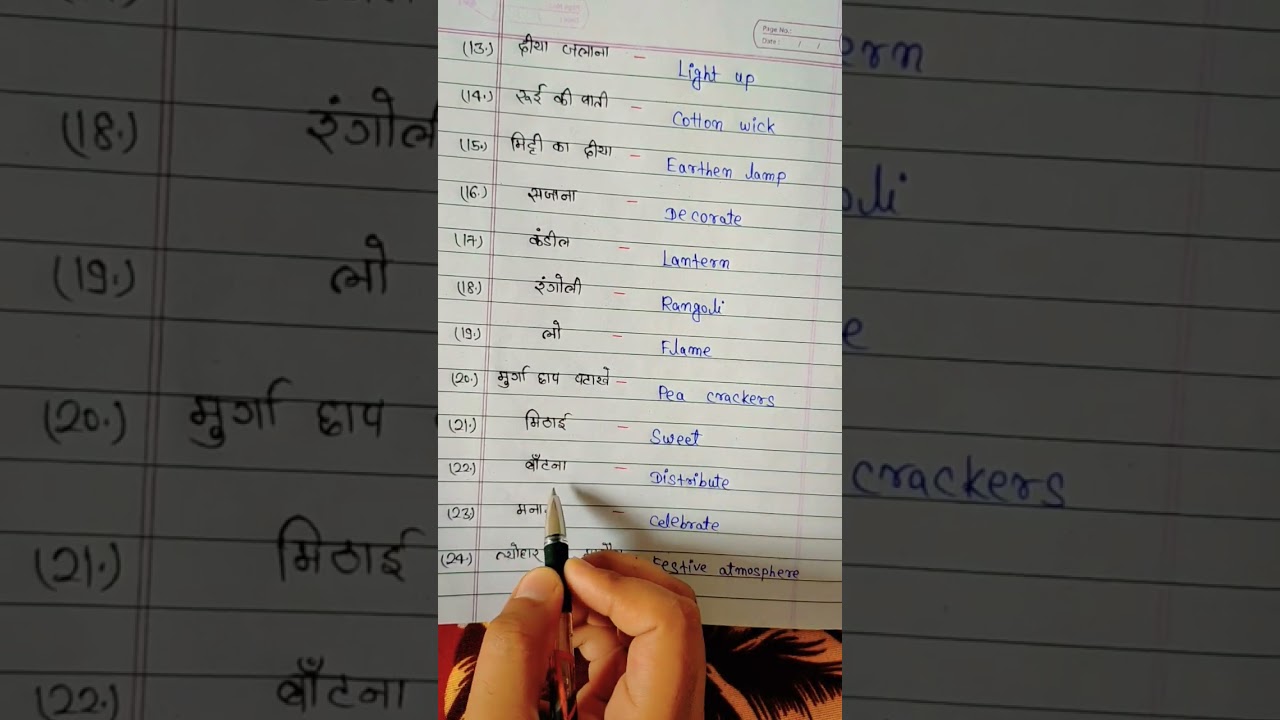 Page No.:
Date: / /
(13.) दीया जलाना - Light up
(14.) रूई की बाती - Cotton wick
(15.) मिट्टी का दीया - Earthen lamp
(16.) सजाना - Decorate
(17.) कंडील - Lantern
(18.) रंगोली - Rangoli
(19.) लो - Flame
(20.) मुर्गा छाप पटाखे - Pea crackers
(21.) मिठाई - Sweet
(22.) बाँटना - Distribute
(23.) - Celebrate
(24.) त्योहार - Festive atmosphere
ern
(18.) रंगोली
oli
(19.) लो
e
(20.) मुर्गा छाप crackers
(21.) मिठाई
(22.) बाँटना